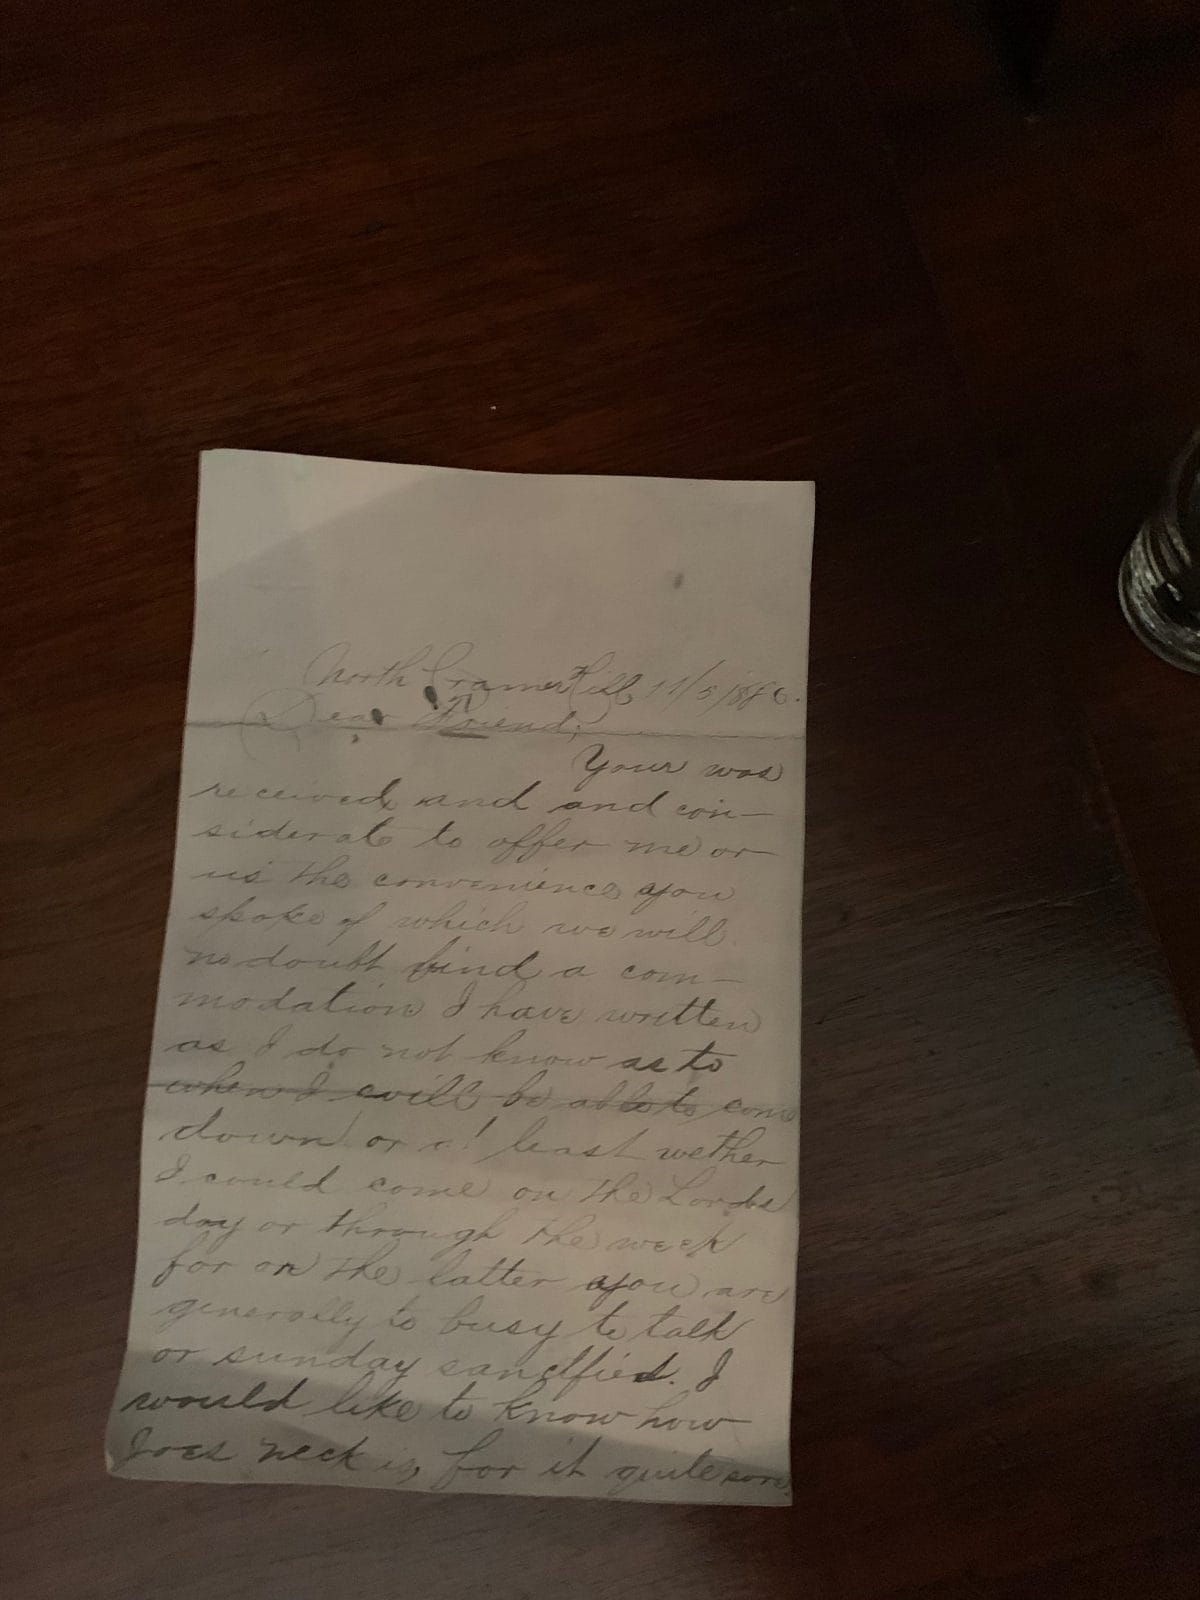 North Cramer Hill 11/5/1886.
Dear Friend,
Your was
received and and con-
siderate to offer me or
us the convenience you
spoke of which we will
no doubt find a com-
modation I have written
as I do not know as to
when I will be able to come
down or at least wether
I could come on the Lords
day or through the week
for on the latter you are
generally to busy to talk
or sunday sanctfied. I
would like to know how
Joes neck is, for it quite sore